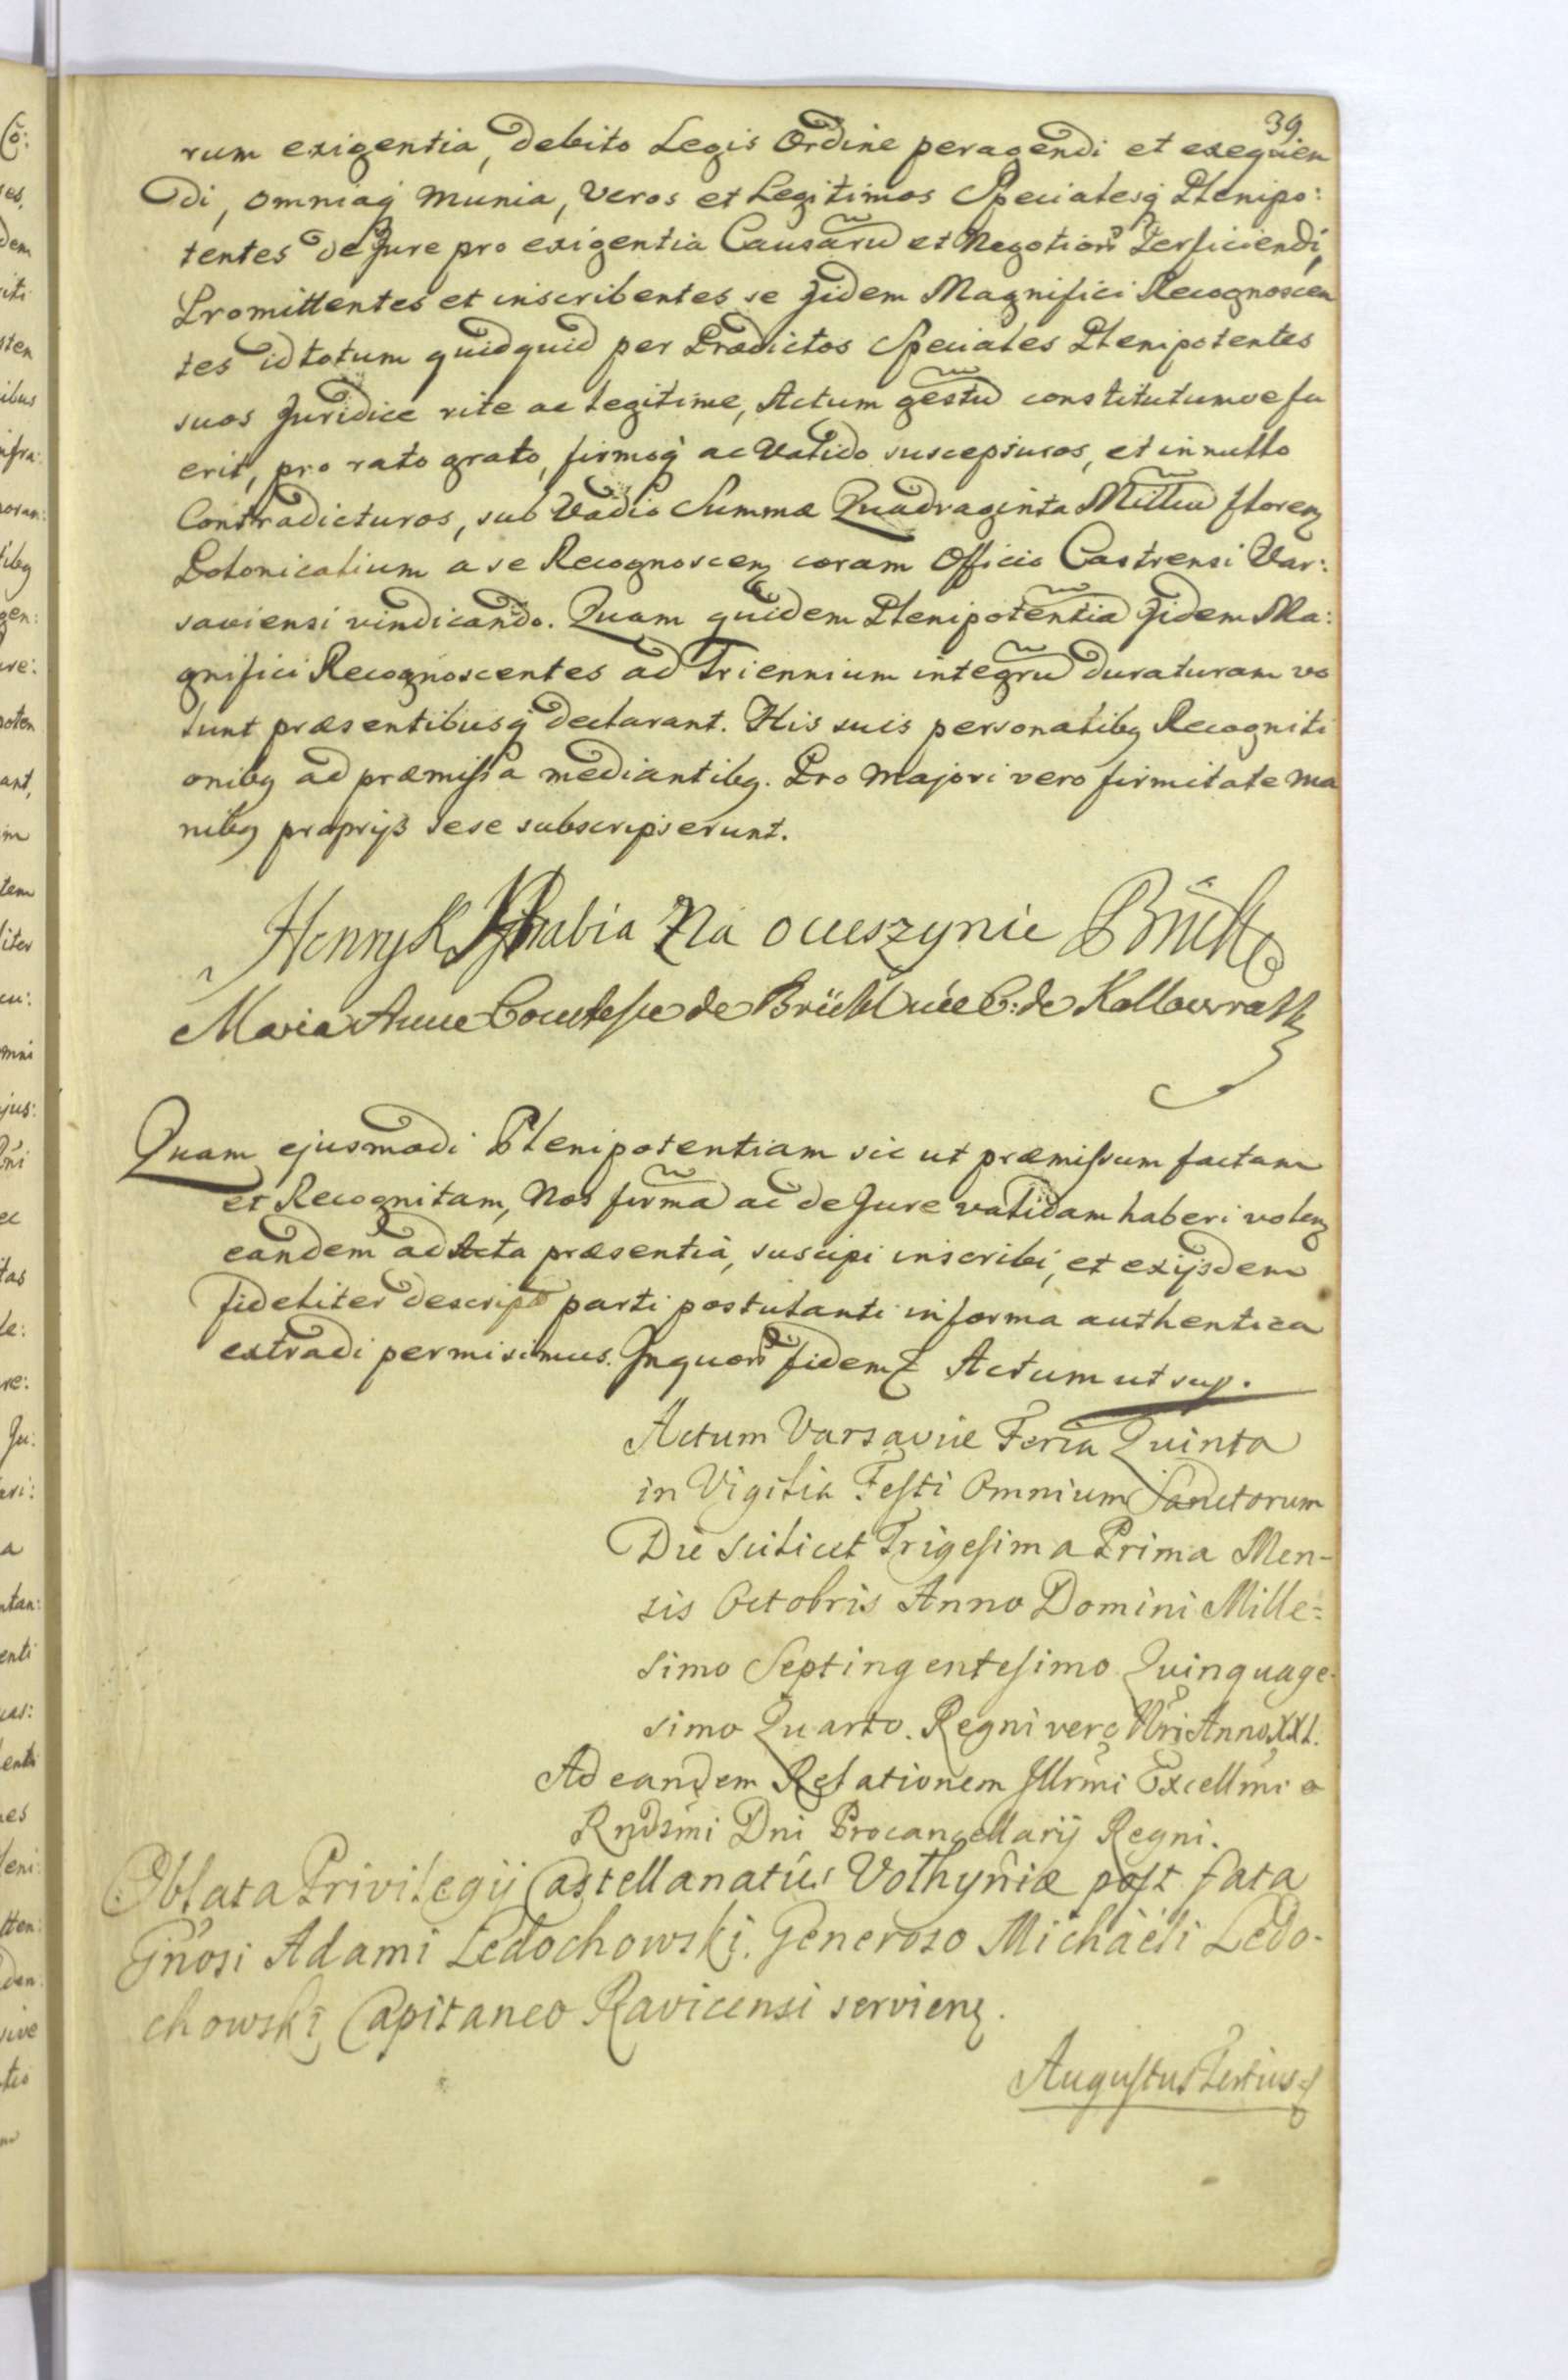 39.
rum exigentia, debito Legis Ordine peragendi et exequen
di, omniaq̃ munia, Veros et Legitimos Specialesq̃ Plenipo:
tentes de Jure pro exigentia Causarũ et Negotior̃ Perficiendi,
Promittentes et inscribentes se Jidem Magnifici Recognoscen
tes id totum quidquid per Prædictos Speciales Plenipotentes
suos Juridice rite ac legitime, Actum gestũ constitutumve fu
erit, pro rato grato, firmoq̃ ac Valido suscepturos, et in nullo
Contradicturos, sub Vadio Summæ Quadraginta Milliũ florenꝫ
Polonicalium a se Recognoscenꝫ coram Officio Castrensi Var:
saviensi vindicando. Quam quidem Plenipotentiã Jidem Ma:
gnifici Recognoscentes ad Triennium integrũ duraturam vo
lunt præsentibusq̃ declarant. His suis personalibꝫ Recogniti
onibꝫ ad præmissa mediantibꝫ. Pro Majori vero firmitate ma
nibꝫ proprijs sese subscripserunt.
Henryk Hrabia Na ocieszynie Brühl
Maria Anne Comtesse de Brühl née C: de Kollowrath
Quam ejusmodi Plenipotentiam sic ut præmissum factam
et Recognitam, Nos firmã ac de Jure validam haberi volenꝫ
eandem ad Acta præsentia, suscipi inscribi, et exijsdem
fideliter descriptã parti postulanti in forma authentica
extradi permisimus. In quor̃ fidem Actum ut sup.
Actum Varsaviæ Feria Quinta
in Vigilia Festi Omnium Sanctorum
Die scilicet Trigesima Prima Men-
sis Octobris Anno Domini Mille=
simo Septingentesimo Quinquage-
simo Quarto. Regni vero Nr̃i Anno XXI.
Ad eandem Relationem Illr̃mi Excellm̃i &
Rnd̃smi Dni Procancellarij Regni.
Oblata Privilegij Castellanatûs Volhyniæ post fata
Gñosi Adami Ledochowski, Generoso Michaëli Ledo-
chowski Capitaneo Ravicensi servienꝫ.
Augustus Tertius